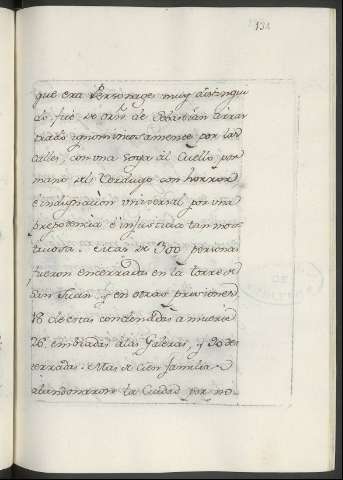 131
que era Personage muy distingui
do, fué de orn. de Sebastian arras
trado ignominiosamente por las
calles, con una soga al Cuello por
mano del Verdugo con horror,
é indignacion universal por una
prepotencia é injusticia tan mons
truosa. Cerca de 300 personas
fueron encerradas en la torre de
San Juan, y en otras prisiones
18 de estas condenadas a muerte
26 embiadas alas Galeras, y 30 des
terradas. Mas de cien familias
abandonaron la Ciudad por no
DE